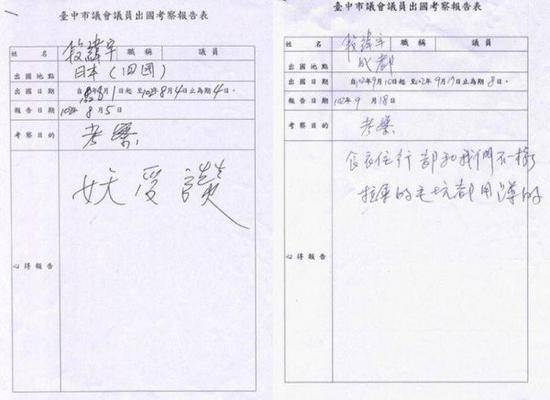 臺中市議會議員出國考察報告表
姓名 段緯宇 職稱 議員
出國地點 日本(四國)
出國日期 自 8月1日起至102年8月4日止為期4日
報告日期 102年8月5日
考察目的 考察
心得報告 妖受讚
臺中市議會議員出國考察報告表
姓名 段緯宇 職稱 議員
出國地點 成都
出國日期 自102年9月10日起至102年9月17日止為期8日
報告日期 102年9月18日
考察目的 考察
心得報告
食衣住行都和我們不一樣
拉屎的毛坑都用蹲的